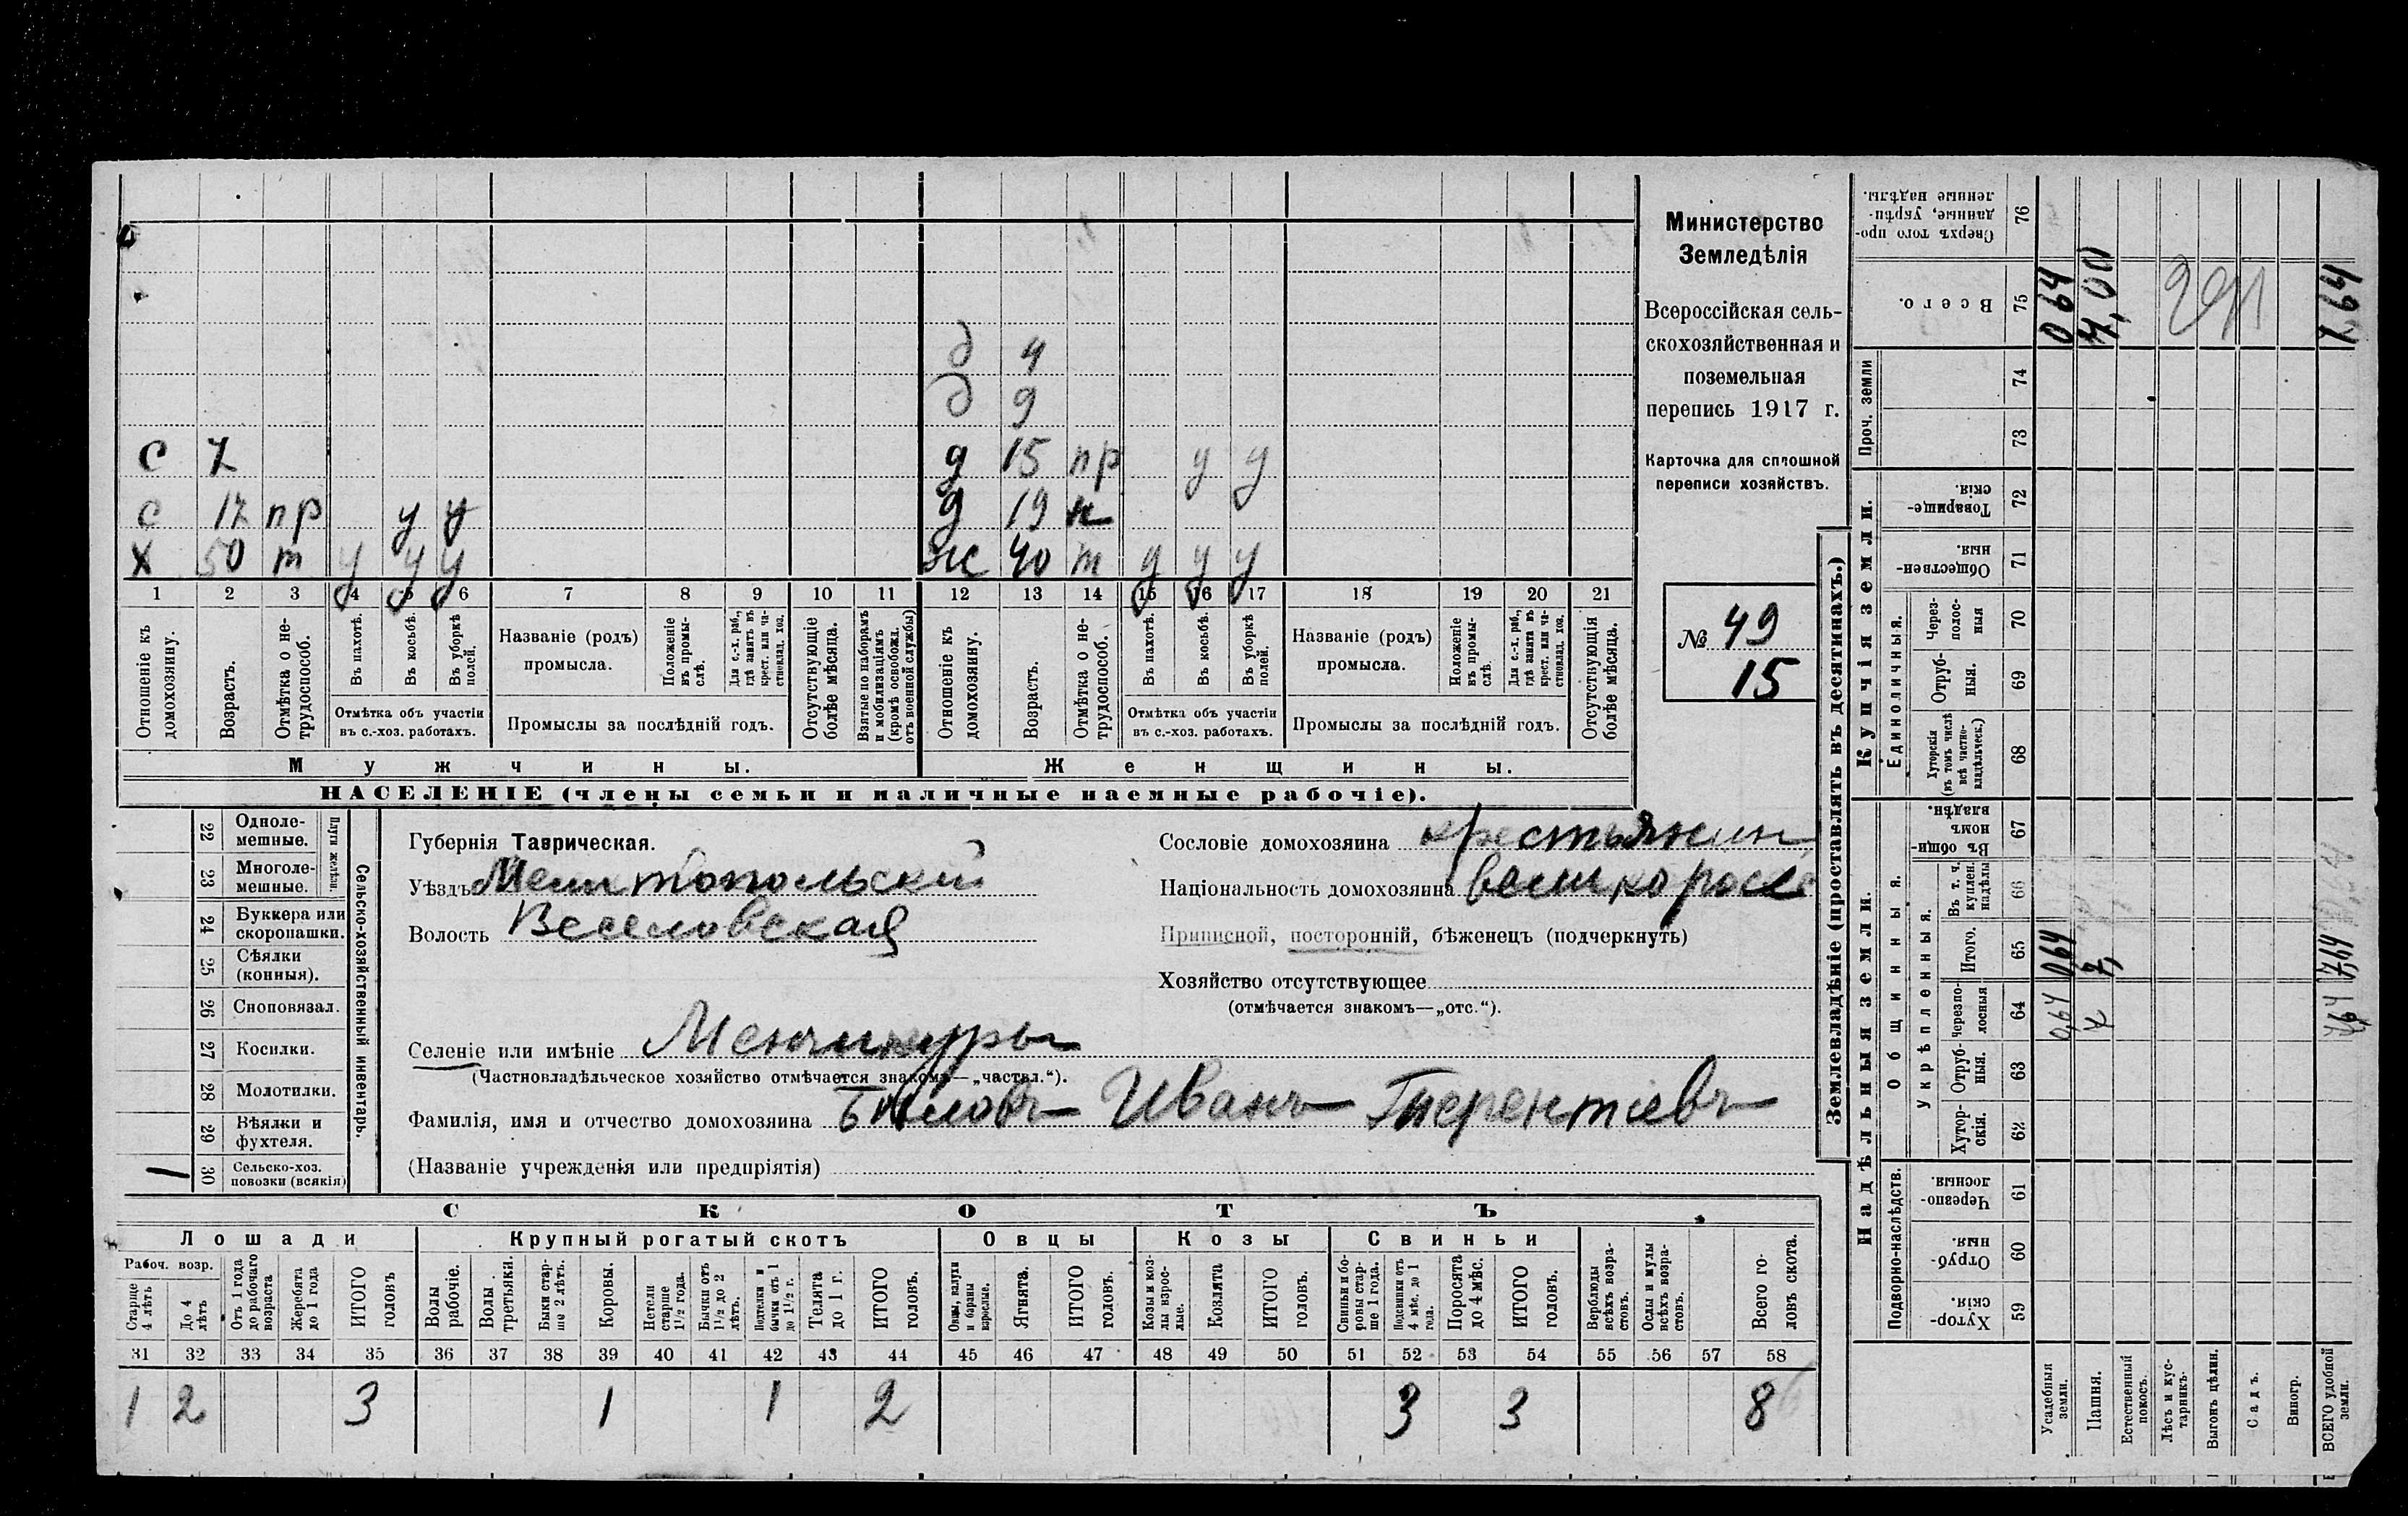 с 7
с 17 пр у у
х 50 т у у у
д 4
д 9
д 15 пр у у
д 19
ж 40 т у у у
1 2 3 4 5 6 7 8 9 10 11 12 13 14 15 16 17 18 19 20 21
Отношеніе къ домохозяину.
Возрастъ.
Отмѣтка о нетрудоспособ.
Въ пахотѣ.
Въ косьбѣ.
Въ уборкѣ полей.
Отмѣтка объ участіи
въ с.-хоз. работахъ.
Названіе (родъ)
промысла.
Положеніе въ промыслѣ.
Для с.-х. раб., гдѣ занятъ въ крест. или частновлад. хоз.
Промыслы за послѣдній годъ.
Отсутствующіе болѣе мѣсяца.
Взятые по наборамъ и мобилизаціямъ (кромѣ освобожд. отъ военной службы)
Отношеніе къ домохозяину.
Возрастъ.
Отмѣтка о нетрудоспособ.
Въ пахотѣ.
Въ косьбѣ.
Въ уборкѣ полей.
Отмѣтка объ участіи
въ с.-хоз. работахъ.
Названіе (родъ)
промысла.
Положеніе въ промыслѣ.
Для с.-х. раб., гдѣ занята въ крест. или частновлад. хоз.
Промыслы за послѣдній годъ.
Отсутствующія болѣе мѣсяца.
Мужчины.
Женщины.
НАСЕЛЕНІЕ (члены семьи и наличные наемные рабочіе).
Министерство
Земледѣлія
Всероссійская сель-
скохозяйственная и
поземельная
перепись 1917 г.
Карточка для сплошной
переписи хозяйствъ.
№ 49
15
22 Однолемешные.
23 Многолемешные.
Плуги желѣзн.
24 Буккера или скоропашки.
25 Сѣялки (конныя).
26 Сноповязал.
27 Косилки.
28 Молотилки.
29 Вѣялки и фухтеля.
1 30 Сельско-хоз. повозки (всякія)
Сельско-хозяйственный инвентарь.
Губернія Таврическая.
Уѣздъ Мелитопольскій
Волость Веселовская
Сословіе домохозяина крестьянин
Національность домохозяина великоросс
Приписной, посторонній, бѣженецъ (подчеркнуть)
Хозяйство отсутствующее
(отмѣчается знакомъ—„отс.“).
Селеніе или имѣніе Менчикуры
(Частновладѣльческое хозяйство отмѣчается знакомъ—„частвл.“).
Фамилія, имя и отчество домохозяина Иванъ Терентіевъ
(Названіе учрежденія или предпріятія)
СКОТЪ
Лошади
Крупный рогатый скотъ
Овцы
Козы
Свиньи
Рабоч. возр.
Старше 4 лѣтъ
До 4 лѣтъ
Отъ 1 года до рабочаго возраста
Жеребята до 1 года
ИТОГО головъ
Волы рабочіе.
Волы третьяки.
Быки старше 2 лѣтъ.
Коровы.
Нетели старше 1½ года.
Бычки отъ 1½ до 2 лѣтъ.
Подтелки и бычки отъ 1 до 1½ г.
Телята до 1 г.
ИТОГО головъ.
Овцы, валухи и бараны взрослые.
Ягнята.
ИТОГО головъ.
Козы и козлы взрослые.
Козлята
ИТОГО головъ.
Свиньи и боровы старше 1 года.
Подсвинки отъ 4 мѣс. до 1 года.
Поросята до 4 мѣс.
ИТОГО головъ.
Верблюды всѣхъ возрастовъ.
Ослы и мулы всѣхъ возрастовъ.
Всего головъ скота.
31 32 33 34 35 36 37 38 39 40 41 42 43 44 45 46 47 48 49 50 51 52 53 54 55 56 57 58
1 2 3 1 1 2 3 3 8
Землевладѣніе (проставлять въ десятинахъ.)
Надѣльныя земли.
Купчія земли.
Проч. земли
Подворно-наслѣдств.
Общинныя.
Укрѣпленныя.
Единоличныя.
59 Хуторскія.
60 Отрубныя.
61 Черезполосныя.
62 Хуторскія.
63 Отрубныя.
64 Черезполосныя
65 Итого.
66 Въ т. ч. куплен. надѣлы
67 Въ общинномъ владѣн.
68 Хуторскія (въ томъ числѣ всѣ частновладѣльческ.)
69 Отрубныя.
70 Черезполосныя
71 Общественныя.
72 Товарищескія.
73
74
75 Всего.
76 Сверхъ того проданные, укрѣпленные надѣлы.
Усадебныя земли.
0,64 064 064
Пашня.
7 7, 7,00
Естественный покосъ.
Лѣсъ и кустарникъ.
Выгонъ цѣлин.
Садъ.
Виногр.
ВСЕГО удобной земли.
7,64 7,64 7,64